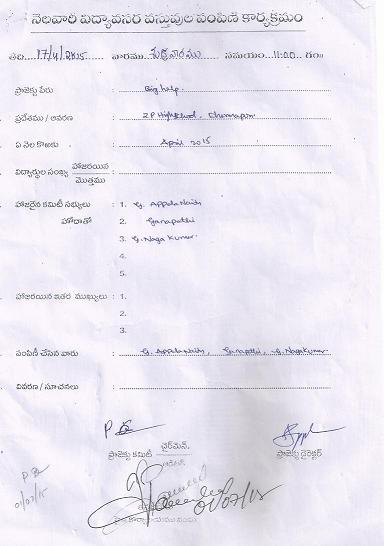 నెలవారీ విద్యావసర వస్తువుల పంపిణీ కార్యక్రమం
తేది. 17/4/2015 వారము శుక్రవారము సమయం 11:00 గం॥
ప్రాజెక్టు పేరు : Big help.
ప్రదేశము / ఆవరణ : Z P High School,
ఏ నెల కొఱకు : April 2015
విద్యార్థుల సంఖ్య హాజరయిన
మొత్తము :
హాజరైన కమిటీ సభ్యులు : 1. G. Appala Naidu
హోదాతో 2. Ganapathi
3. G. Naga Kumar
4.
5.
హాజరయిన ఇతర ముఖ్యులు : 1.
2.
3.
పంపిణీ చేసిన వారు : G. Appala Naidu, Ganapathi, G. Nagakumar
వివరణ / సూచనలు :
చైర్‌మెన్.
ప్రాజెక్టు కమిటీ ప్రాజెక్టు డైరెక్టర్
01/07/15
01/07/15